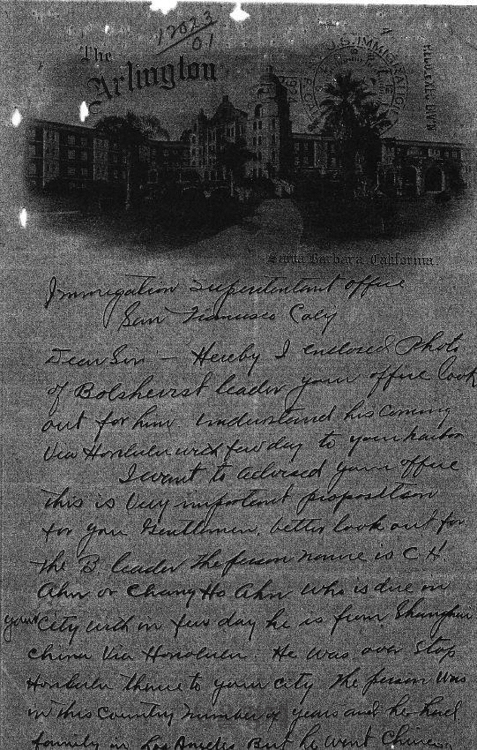 17023
01
The
Arlington
U.S. IMMIGRATION
Santa Barbara California
Immigration Superintentant office
San Francisco Calif
Dear Sir — Hereby I enclosed Photo
of Bolshevist leader your office look
out for him. understand his coming
Via Honolulu with few day to your harbor
I want to advised your office
this is Very important proposition
for you Gentlemen, better look out for
the B leader The person name is C H
Ahn or Chang Ho Ahn who is due in
your City with in few day he is from Shanghai
China Via Honolulu. He was over stop
Honlulu thence to your city The person was
in this Country number of years and he had
family in Los Angeles But he went China